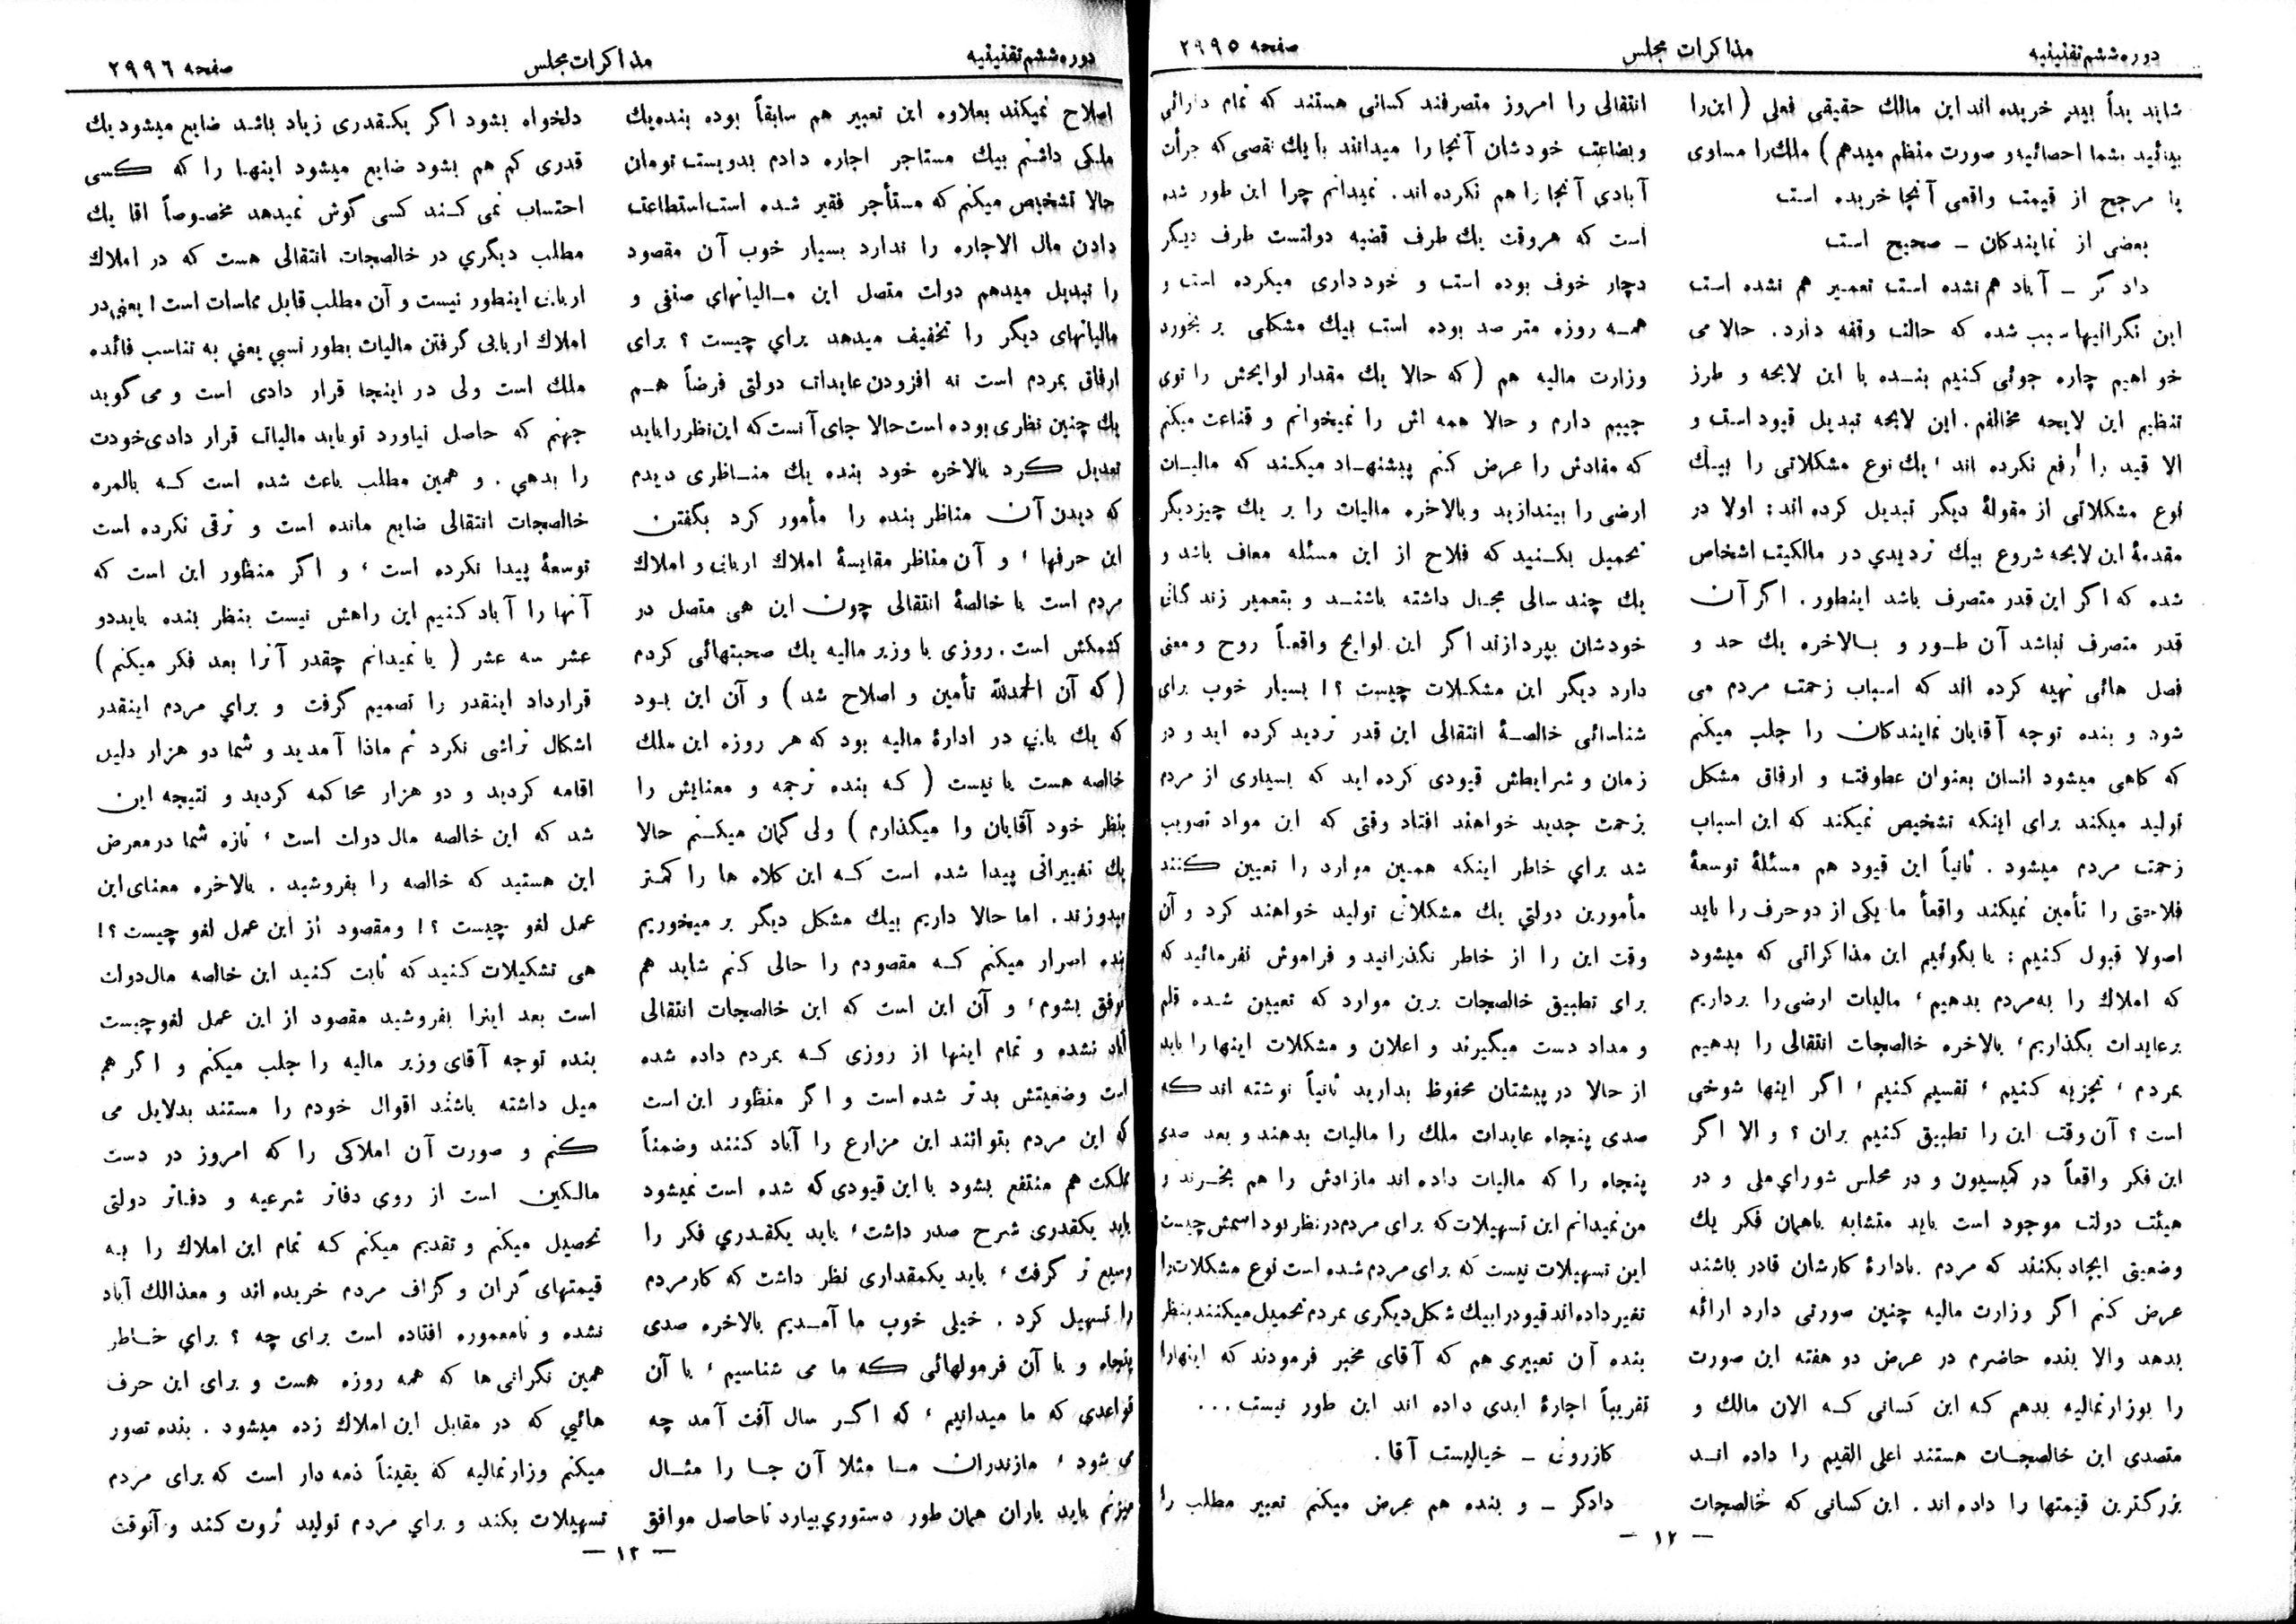 دوره ششم تقنینیه
مذاکرات مجلس
صفحه ۲۹۹۵
شاید یداً بید خریده اند این مالك حقیقی فعلی (این را
بیائید بشما احصائیه و صورت منظم میدهم) ملك را مساوی
یا مرجح از قیمت واقعی آنجا خریده است
بعضی از نمایندکان ــ صحیح است
دادکر ــ آباد هم نشده است تعمیر هم نشده است
این نگرانیها سبب شده که حالت وقفه دارد. حالا می
خواهیم چاره جوئی کنیم بنده با این لایحه و طرز
تنظیم این لایحه مخالفم. این لایحه تبدیل قیود است و
الا قید را رفع نکرده اند ، یك نوع مشکلاتی را بیك
نوع مشکلاتی از مقولهٔ دیگر تبدیل کرده اند: اولا در
مقدمهٔ این لایحه شروع بیك تردیدي در مالکیت اشخاص
شده که اکر این قدر متصرف باشد اینطور . اکر آن
قدر متصرف نباشد آن طور و بالاخره یك حد و
فصل هائی تهیه کرده اند که اسباب زحمت مردم می
شود و بنده توجه آقایان نمایندکان را جلب میکنم
که کاهی میشود انسان بعنوان عطوفت و ارفاق مشکل
تولید میکند برای اینکه تشخیص نمیکند که این اسباب
زحمت مردم میشود . ثانیاً این قیود هم مسئلهٔ توسعهٔ
فلاحتی را تأمین نمیکند واقعاً ما یکی از دو حرف را باید
اصولا قبول کنیم : یا بگوئیم این مذاکراتی که میشود
که املاك را به مردم بدهیم ، مالیات ارضی را برداریم
بر عایدات بگذاریم، بالاخره خالصجات انتقالی را بدهیم
بمردم ، تجزیه کنیم ، تقسیم کنیم ، اکر اینها شوخی
است ؟ آن وقت این را تطبیق کنیم بران ؟ و الا اکر
این فکر واقعاً در کمیسیون و در مجلس شوراي ملی و در
هیئت دولت موجود است باید متشابه باهمان فکر یك
وضعیتی ایجاد بکنند که مردم بادارهٔ کارشان قادر باشند
عرض کنم اکر وزارت مالیه چنین صورتی دارد ارائه
بدهد والا بنده حاضرم در عرض دو هفته این صورت
را بوزارتمالیه بدهم که این کسانی که الان مالك و
متصدی این خالصجات هستند اعلی القیم را داده اند
بزرکترین قیمتها را داده اند . این کسانی که خالصجات
انتقالی را امروز متصرفند کسانی هستند که تمام دارائی
و بضاعت خودشان آنجا را میدانند با یك نقصی که جرأت
آبادی آنجا را هم نکرده اند. نمیدانم چرا این طور شده
است که هروقت یك طرف قضیه دولتست طرف دیگر
دچار خوف بوده است و خودداری میکرده است و
همه روزه مترصد بوده است بیك مشکلی بر بخورد
وزارت مالیه هم (که حالا یك مقدار لوایحش را توی
جیبم دارم و حالا همه اش را نمیخوانم و قناعت میکنم
که مفادش را عرض کنم پیشنهاد میکند که مالیات
ارضی را بیندازید وبالاخره مالیات را بر یك چیز دیگر
تحمیل بکنید که فلاح از این مسئله معاف باشد و
یك چند سالی مجال داشته باشند و بتعمیر زندکانی
خودشان بپردازند اکر این لوایح واقعاً روح و معنی
دارد دیگر این مشکلات چیست ؟! بسیار خوب برای
شناسائی خالصهٔ انتقالی این قدر تردید کرده اید و در
زمان و شرایطش قیودی کرده اید که بسیاری از مردم
بزحمت جدید خواهند افتاد وقتی که این مواد تصویب
شد براي خاطر اینکه همین موارد را تعیین کنند
مأمورین دولتي یك مشکلاتی تولید خواهند کرد و آن
وقت این را از خاطر نگذرانید و فراموش نفرمائید که
برای تطبیق خالصجات برین موارد که تعیین شده قلم
و مداد دست میگیرند و اعلان و مشکلات اینها را باید
از حالا در پیشتان محفوظ بدارید ثانیاً نوشته اند که
صدی پنجاه عایدات ملك را مالیات بدهند و بعد صدی
پنجاه را که مالیات داده اند مازادش را هم بخرند و
من نمیدانم این تسهیلات که برای مردم در نظر بود اسمش چیست
این تسهیلات نیست که برای مردم شده است نوع مشکلات را
تغیر داده اند قیود را بیك شکل دیگری بمردم تحمیل میکنند بنظر
بنده آن تعبیری هم که آقای مخبر فرمودند که اینها را
تقریباً اجارهٔ ابدی داده اند این طور نیست ...
کازرونی ــ خیالیست آقا .
دادکر ــ و بنده هم عرض میکنم تعبیر مطلب را
— ١٢ —
دوره ششم تقنینیه
مذاکرات مجلس
صفحه ۲۹۹٦
اصلاح نمیکند بعلاوه این تعبیر هم سابقاً بوده بنده یك
ملکی داشتم بیك مستاجر اجاره دادم بدویست تومان
حالا تشخیص میکنم که مستأجر فقیر شده است استطاعت
دادن مال الاجاره را ندارد بسیار خوب آن مقصود
را تبدیل میدهم دولت متصل این مالیاتهاي صنفی و
مالیاتهای دیگر را تخفیف میدهد براي چیست ؟ برای
ارفاق بمردم است نه افزودن عایدات دولتی فرضاً هم
یك چنین نظری بوده است حالا جای آنست که این نظر را باید
تعدیل کرد بالاخره خود بنده یك مناظری دیدم
که دیدن آن مناظر بنده را مأمور کرد بگفتن
این حرفها ، و آن مناظر مقایسهٔ املاك اربابی و املاك
مردم است با خالصهٔ انتقالی چون این هی متصل در
کشمکش است . روزی با وزیر مالیه یك صحبتهائی کردم
(که آن الحمدلله تأمین و اصلاح شد) و آن این بود
که یك بابي در ادارهٔ مالیه بود که هر روزه این ملك
خالصه هست یا نیست ( که بنده ترجمه و معنایش را
بنظر خود آقایان وا میگذارم ) ولی کمان میکنم حالا
یك تغییراتی پیدا شده است که این کلاه ها را کمتر
بپدوزند. اما حالا داریم بیك مشکل دیگر بر میخوریم
بنده اصرار میکنم که مقصودم را حالی کنم شاید هم
موفق بشوم ، و آن این است که این خالصجات انتقالی
آباد نشده و تمام اینها از روزی که بمردم داده شده
است وضعیتش بدتر شده است و اکر منظور این است
که این مردم بتوانند این مزارع را آباد کنند وضمناً
مملکت هم منتفع بشود با این قیودی که شده است نمیشود
باید یکقدری شرح صدر داشت ، باید یکقدري فکر را
وسیع تر گرفت ، باید یکمقداری نظر داشت که کار مردم
را تسهیل کرد . خیلی خوب ما آمدیم بالاخره صدی
پنجاه و با آن فرمولهائی که ما می شناسیم ، با آن
قواعدي که ما میدانیم ، که اکر سال آفت آمد چه
می شود ، مازندران ما مثلا آن جا را مثال
میزنم باید باران همان طور دستوري بیارد تا حاصل موافق
دلخواه بشود اکر یکقدری زیاد باشد ضایع میشود یك
قدری کم هم بشود ضایع میشود اینها را که کسی
احتساب نمی کند کسی کوش نمیدهد مخصوصاً اقا یك
مطلب دیگري در خالصجات انتقالی هست که در املاك
اربابی اینطور نیست و آن مطلب قابل مماسات است ! یعنی در
املاك اربابی گرفتن مالیات بطور نسبي یعني به تناسب فائده
ملك است ولی در اینجا قرار دادی است و می گوید
جهنم که حاصل نیاورد تو باید مالیات قرار دادی خودت
را بدهي . و همین مطلب باعث شده است که بالمره
خالصجات انتقالی ضایع مانده است و ترقی نکرده است
توسعهٔ پیدا نکرده است ، و اکر منظور این است که
آنها را آباد کنیم این راهش نیست بنظر بنده باید دو
عشر سه عشر ( یا نمیدانم چقدر آنرا بعد فکر میکنم )
قرارداد اینقدر را تصمیم گرفت و براي مردم اینقدر
اشکال تراشی نکرد ثم ماذا آمدید و شما دو هزار دلیل
اقامه کردید و دو هزار محاکمه کردید و نتیجه این
شد که این خالصه مال دولت است ، تازه شما در معرض
این هستید که خالصه را بفروشید . بالاخره معنای این
عمل لغو چیست ؟! و مقصود از این عمل لغو چیست ؟!
هی تشکیلات کنید که ثابت کنید این خالصه مال دولت
است بعد اینرا بفروشید مقصود از این عمل لغو چیست
بنده توجه آقای وزیر مالیه را جلب میکنم و اکر هم
میل داشته باشند اقوال خودم را مستند بدلایل می
کنم و صورت آن املاکی را که امروز در دست
مالکین است از روی دفاتر شرعیه و دفاتر دولتی
تحصیل میکنم و تقدیم میکنم که تمام این املاك را به
قیمتهای گران و گزاف مردم خریده اند و معذالك آباد
نشده و نامعموره افتاده است برای چه ؟ براي خاطر
همین نگرانی ها که همه روزه هست و برای این حرف
هائیي که در مقابل این املاك زده میشود . بنده تصور
میکنم وزارتمالیه که یقیناً ذمه دار است که برای مردم
تسهیلات بکند و براي مردم تولید ثروت کند و آنوقت
— ١٣ —